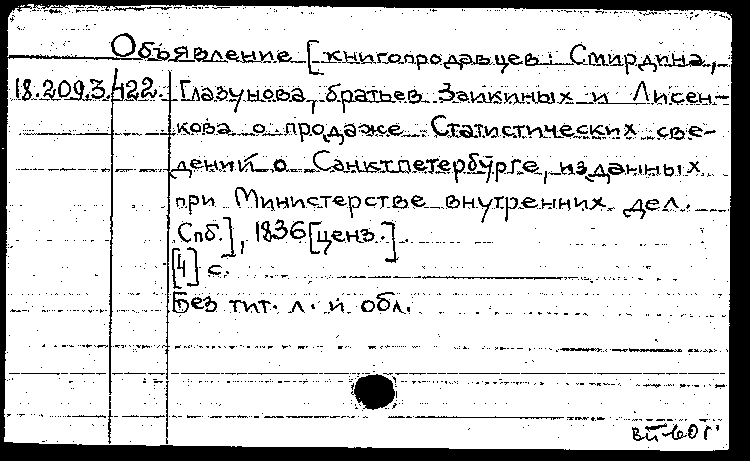 Объявление [книгопродавцев: Смирдина,
18.209.3.422. Глазунова, братьев Заикиных и Лисен-
кова о продаже Статистических све-
дений о Санктпетербурге, изданных
при Министерстве внутренних дел.
Спб.], 1836 [ценз.].
[4] с.
Без тит. л. и обл.